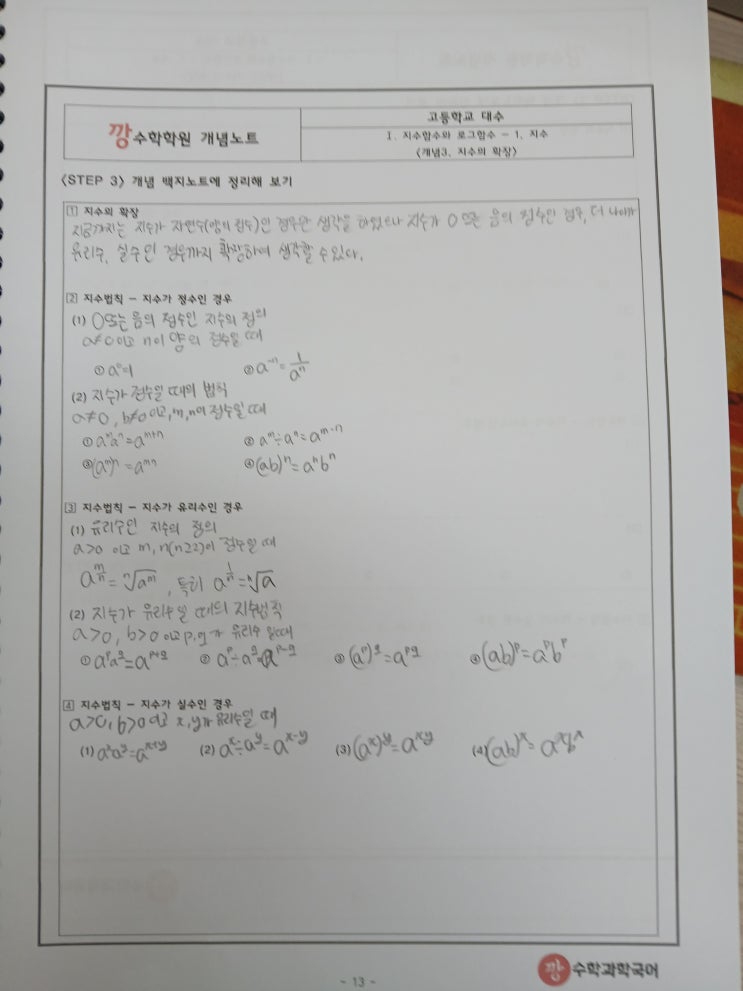 깡수학학원 개념노트
고등학교 대수
Ⅰ. 지수함수와 로그함수 - 1. 지수
<개념3. 지수의 확장>
<STEP 3> 개념 백지노트에 정리해 보기
1 지수의 확장
지금까지는 지수가 자연수(양의 정수)인 경우만 생각을 하였으나 지수가 0 또는 음의 정수인 경우, 더 나아가
유리수, 실수인 경우까지 확장하여 생각할 수 있다.
2 지수법칙 - 지수가 정수인 경우
(1) 0또는 음의 정수인 지수의 정의
a≠0이고 n이 양의 정수일 때
① a⁰=1 ② a⁻ⁿ = 1/aⁿ
(2) 지수가 정수일 때의 법칙
a≠0, b≠0이고, m, n이 정수일때
① aᵐaⁿ=aᵐ⁺ⁿ ② aᵐ÷aⁿ=aᵐ⁻ⁿ
③ (aᵐ)ⁿ = aᵐⁿ ④ (ab)ⁿ = aⁿbⁿ
3 지수법칙 - 지수가 유리수인 경우
(1) 유리수인 지수의 정의
a>0 이고 m, n(n≥2)이 정수일 때
a^(m/n) = ⁿ√aᵐ , 특히 a^(1/n) = ⁿ√a
(2) 지수가 유리수일 때의 지수법칙
a>0, b>0 이고 p, q가 유리수 일때
① a^p a^q = a^(p+q) ② a^p ÷ a^q = a^(p-q) ③ (a^p)^q = a^(pq) ④ (ab)^p = a^p b^p
4 지수법칙 - 지수가 실수인 경우
a>0, b>0 이고 x, y가 유리수일 때
(1) a^x a^y = a^(x+y) (2) a^x ÷ a^y = a^(x-y) (3) (a^x)^y = a^(xy) (4) (ab)^x = a^x b^x
- 13 -
깡 수학과학국어